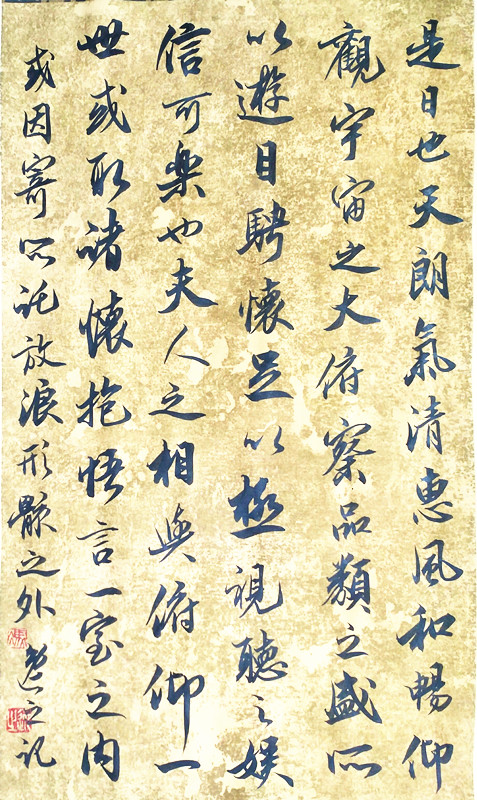 是日也天朗氣清惠風和暢仰
觀宇宙之大俯察品類之盛所
以遊目騁懷足以極視聽之娱
信可樂也夫人之相與俯仰一
世或取諸懷抱悟言一室之内
或因寄所託放浪形骸之外
之记